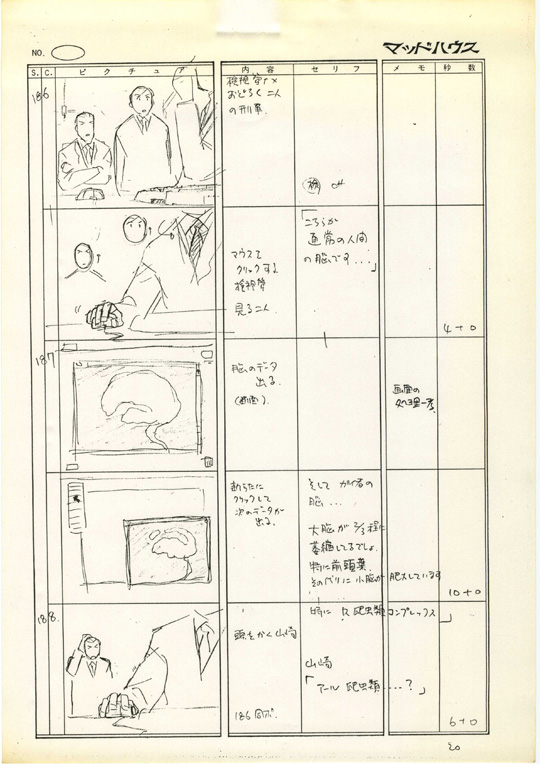 NO.
マッドハウス
S. C. ピクチュア 内容 セリフ メモ 秒数
186
検視官と
おどろく二人
の刑事
検 off
マウスで
クリックする
検視官
見る二人
「こちらが
通常の人間
の脳です...」
4+0
187
脳のデータ
出る.
(断面).
画面の
処理一考.
新らたに
クリックして
次のデータが
出る.
そして 
脳...
大脳が 2/3程に
萎縮してるでしょ.
特に前頭葉.
そのわりに小脳が肥大しています
10+0
188.
特に R 爬虫類コンプレックス」
頭をかく山崎
山崎
「アール 爬虫類....?」
186 同ポ.
6+0
20